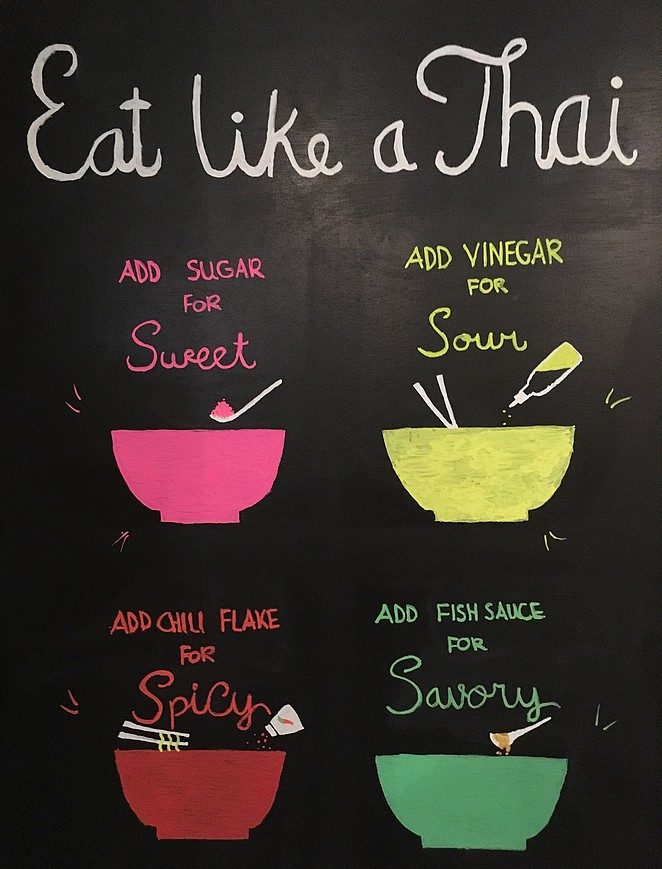 Eat like a Thai
ADD SUGAR
FOR
Sweet
ADD VINEGAR
FOR
Sour
ADD CHILI FLAKE
FOR
Spicy
ADD FISH SAUCE
FOR
Savory